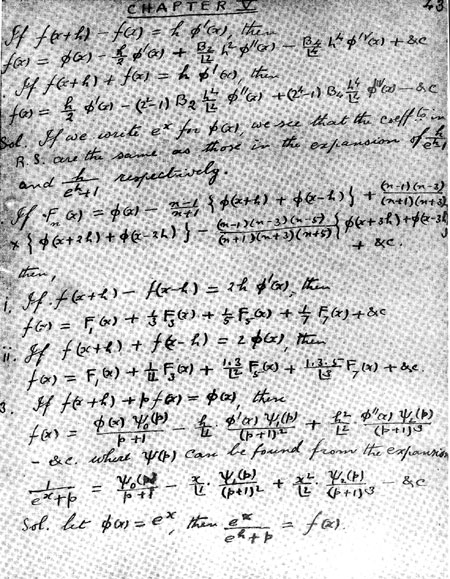 CHAPTER V 43
If f(x+h) - f(x) = h φ'(x), then
f(x) = φ(x) - h/2 φ'(x) + B₂/⌊2 h² φ''(x) - B₄/⌊4 h⁴ φ^IV(x) + &c
If f(x+h) + f(x) = h φ'(x), then
f(x) = h/2 φ'(x) - (2²-1) B₂ h²/⌊2 φ''(x) + (2⁴-1) B₄ h⁴/⌊4 φ^IV(x) - &c
Sol. If we write eˣ for φ(x), we see that the coeff^ts in
R.S. are the same as those in the expansion of h/(e^h-1)
and h/(e^h+1) respectively.
If Fₙ(x) = φ(x) - (n-1)/(n+1) {φ(x+h) + φ(x-h)} + (n-1)(n-3)/(n+1)(n+3)
× {φ(x+2h) + φ(x-2h)} - (n-1)(n-3)(n-5)/(n+1)(n+3)(n+5) {φ(x+3h) + φ(x-3h)}
+ &c.
then,
i. If f(x+h) - f(x-h) = 2h φ'(x), then
f(x) = F₁(x) + 1/3 F₃(x) + 1/5 F₅(x) + 1/7 F₇(x) + &c
ii. If f(x+h) + f(x-h) = 2 φ(x), then
f(x) = F₁(x) + 1/⌊1 F₃(x) + 1·3/⌊2 F₅(x) + 1·3·5/⌊3 F₇(x) + &c.
3. If f(x+h) + p f(x) = φ(x), then
f(x) = φ(x) ψ₀(p)/(p+1) - h/⌊1 · φ'(x) ψ₁(p)/(p+1)² + h²/⌊2 · φ''(x) ψ₂(p)/(p+1)³
- &c. where ψ(p) can be found from the expansion
1/(eˣ+p) = ψ₀(p)/(p+1) - x/⌊1 ψ₁(p)/(p+1)² + x²/⌊2 ψ₂(p)/(p+1)³ - &c
Sol. let φ(x) = eˣ, then eˣ/(e^h+p) = f(x).